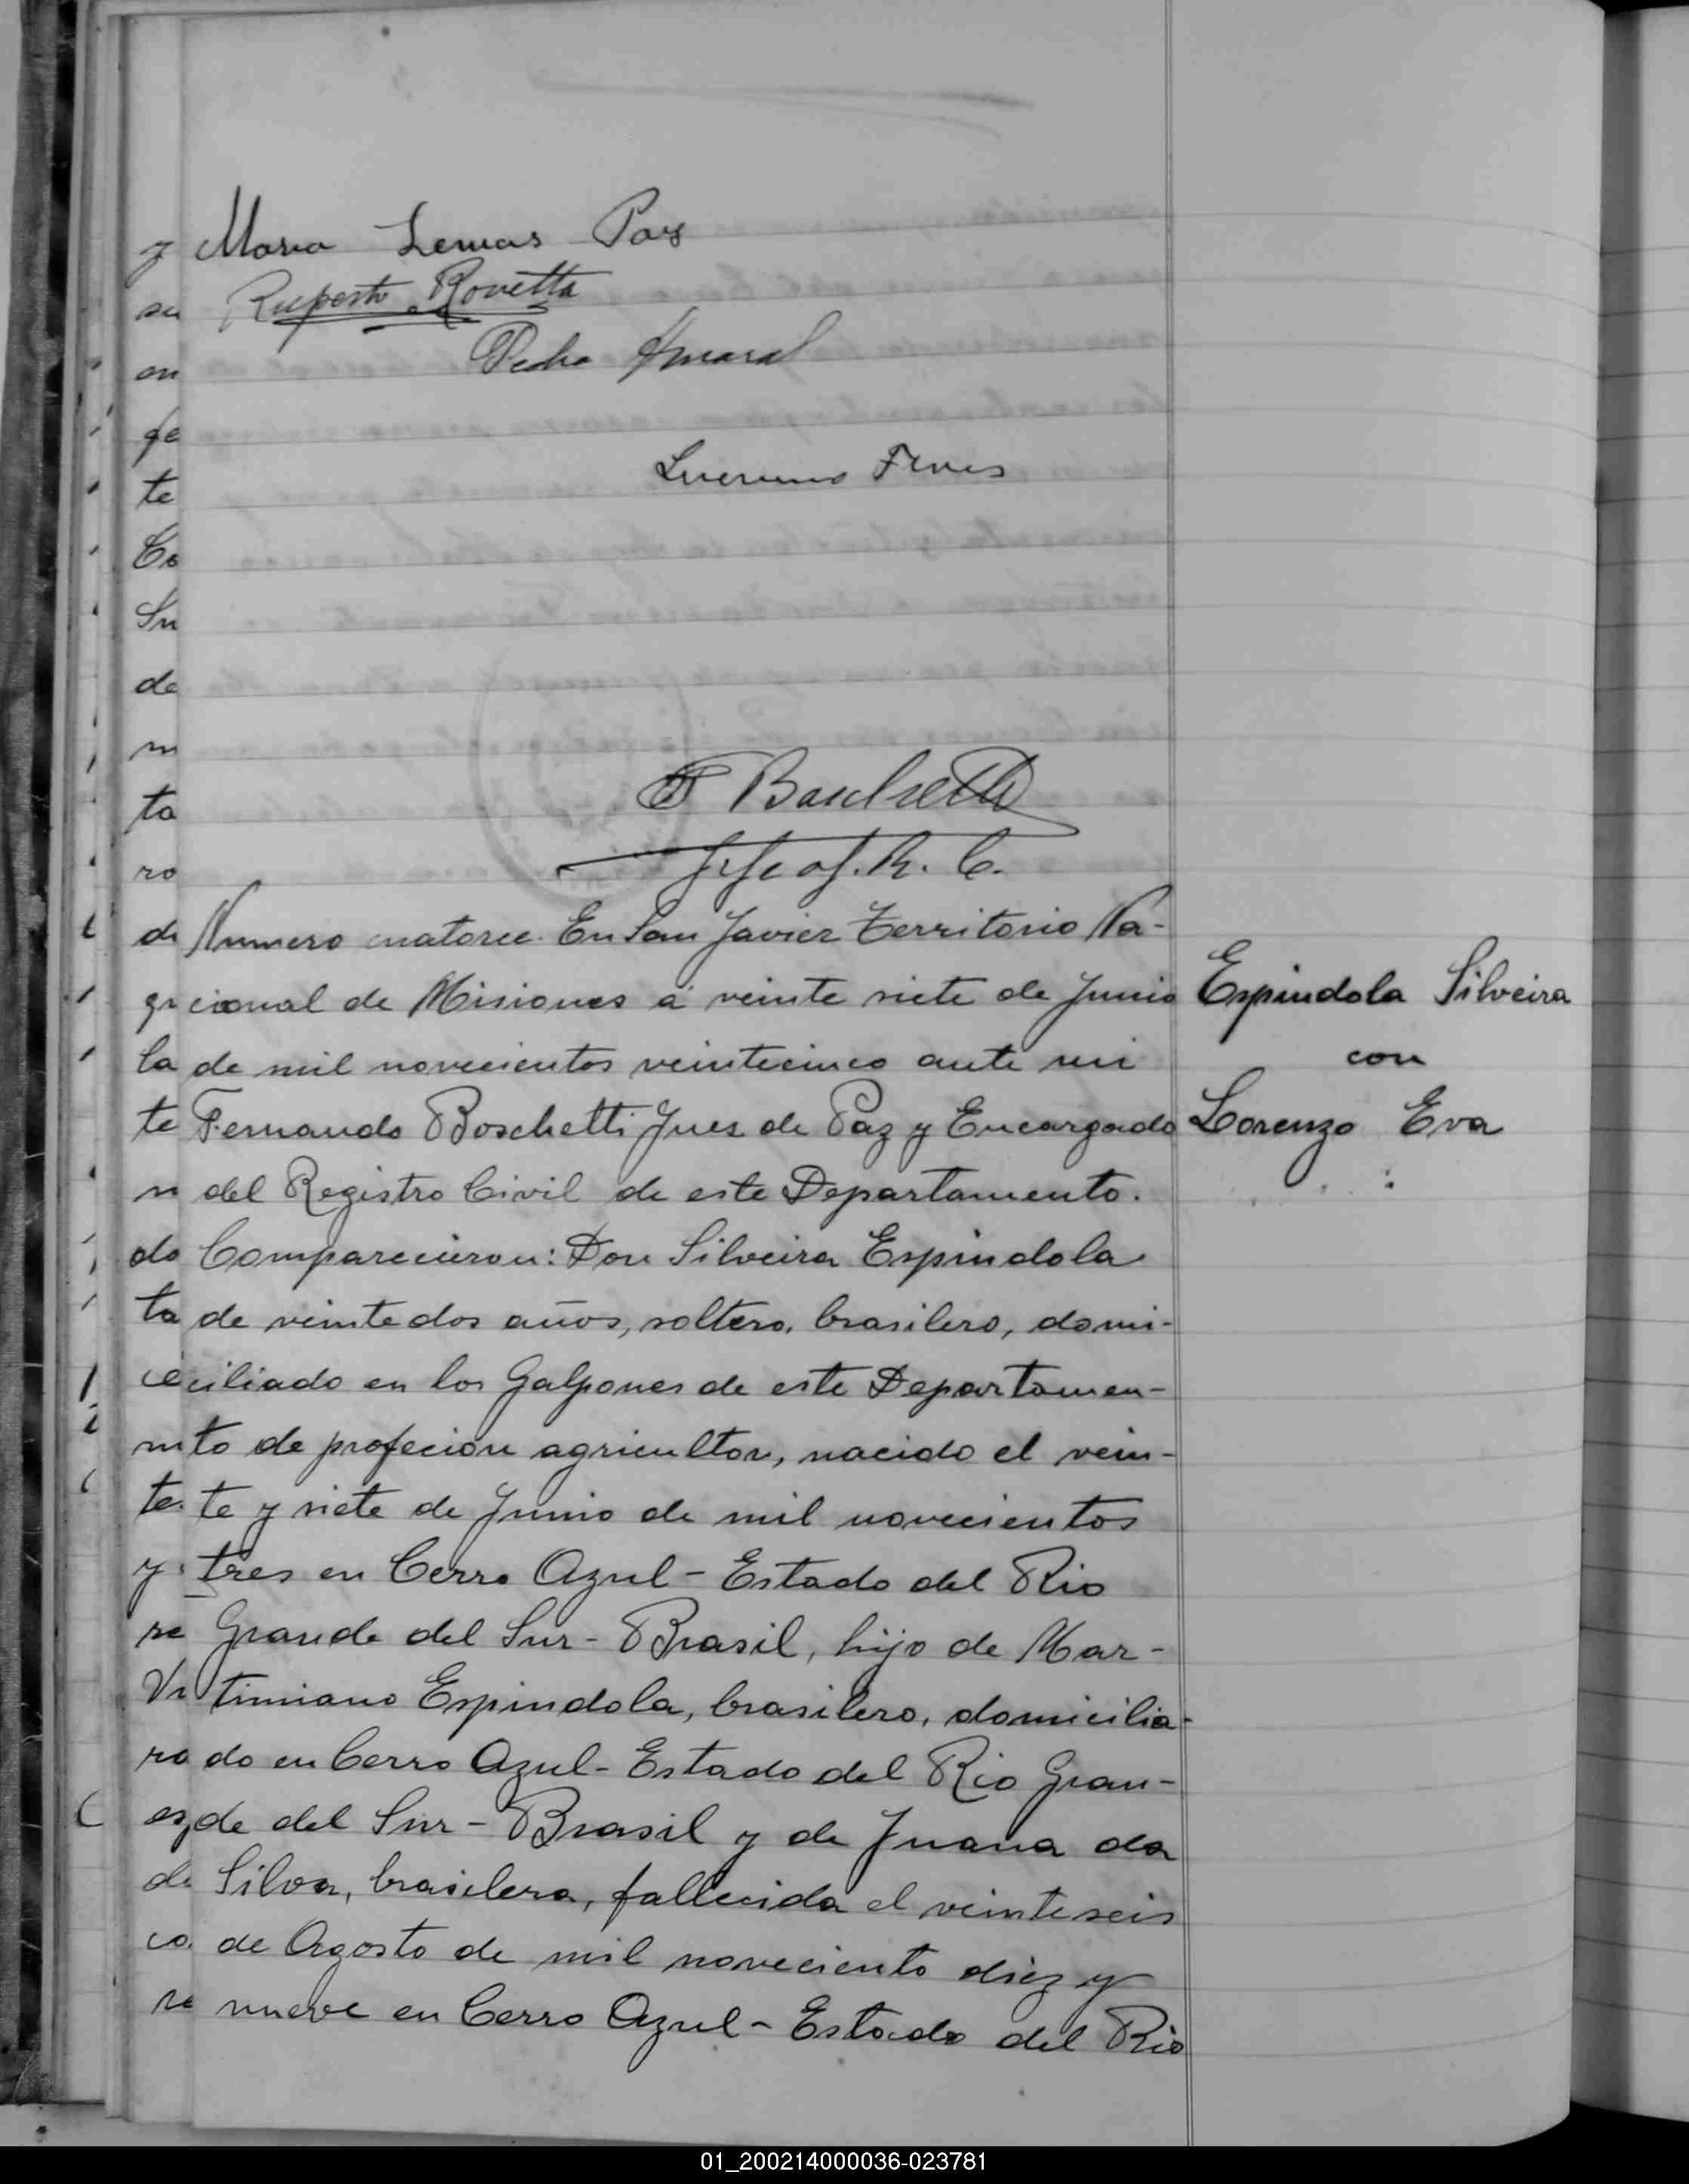 Maria Lemas Paz
Ruperto Rovetta
Pedro Amaral
F Boschetti
Jefe of. R. C.
Numero catorce. En San Javier Territorio Na-
cional de Misiones á veinte siete de Junio
de mil novecientos veinticinco ante mi
Fernando Boschetti Juez de Paz y Encargado
del Registro Civil de este Departamento.
Comparecieron: Don Silveira Espindola
de veinte dos años, soltero, brasilero, domi-
ciliado en los Galpones de este Departamen-
to de profecion agricultor, nacido el vein-
te y siete de Junio de mil novecientos
tres en Cerro Azul - Estado del Rio
Grande del Sur - Brasil, hijo de Mar-
timiano Espindola, brasilero, domicilia-
do en Cerro Azul - Estado del Rio Gran-
de del Sur - Brasil y de Juana da
Silva, brasilera, fallecida el veinteseis
de Agosto de mil noveciento diez y
nueve en Cerro Azul - Estado del Rio
Espindola Silveira
con
Lorenzo Eva
y
su
on
fe
te
Co
Su
de
m
ta
ro
de
gr
la
te
n
do
ta
te.
y
se
ro
es,
de
co.
se
01_200214000036-023781